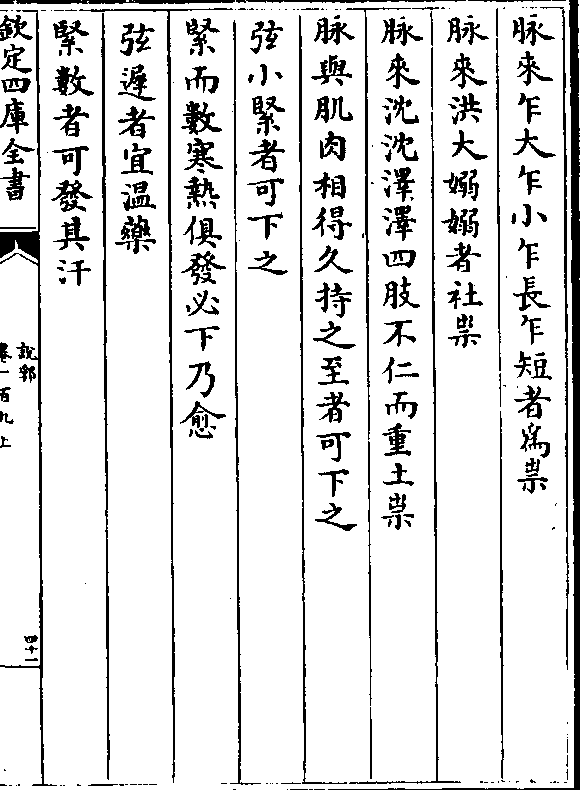 脉來乍大乍小乍長乍短者為祟
脉來洪大嫋嫋者社祟
脉來沈沈澤澤四肢不仁而重土祟
脉與肌肉相得久持之至者可下之
弦小緊者可下之
緊而數寒熱俱發必下乃愈
弦遲者宜溫藥
緊數者可發其汗
欽定四庫全書
說郛
卷一百九上
四十一